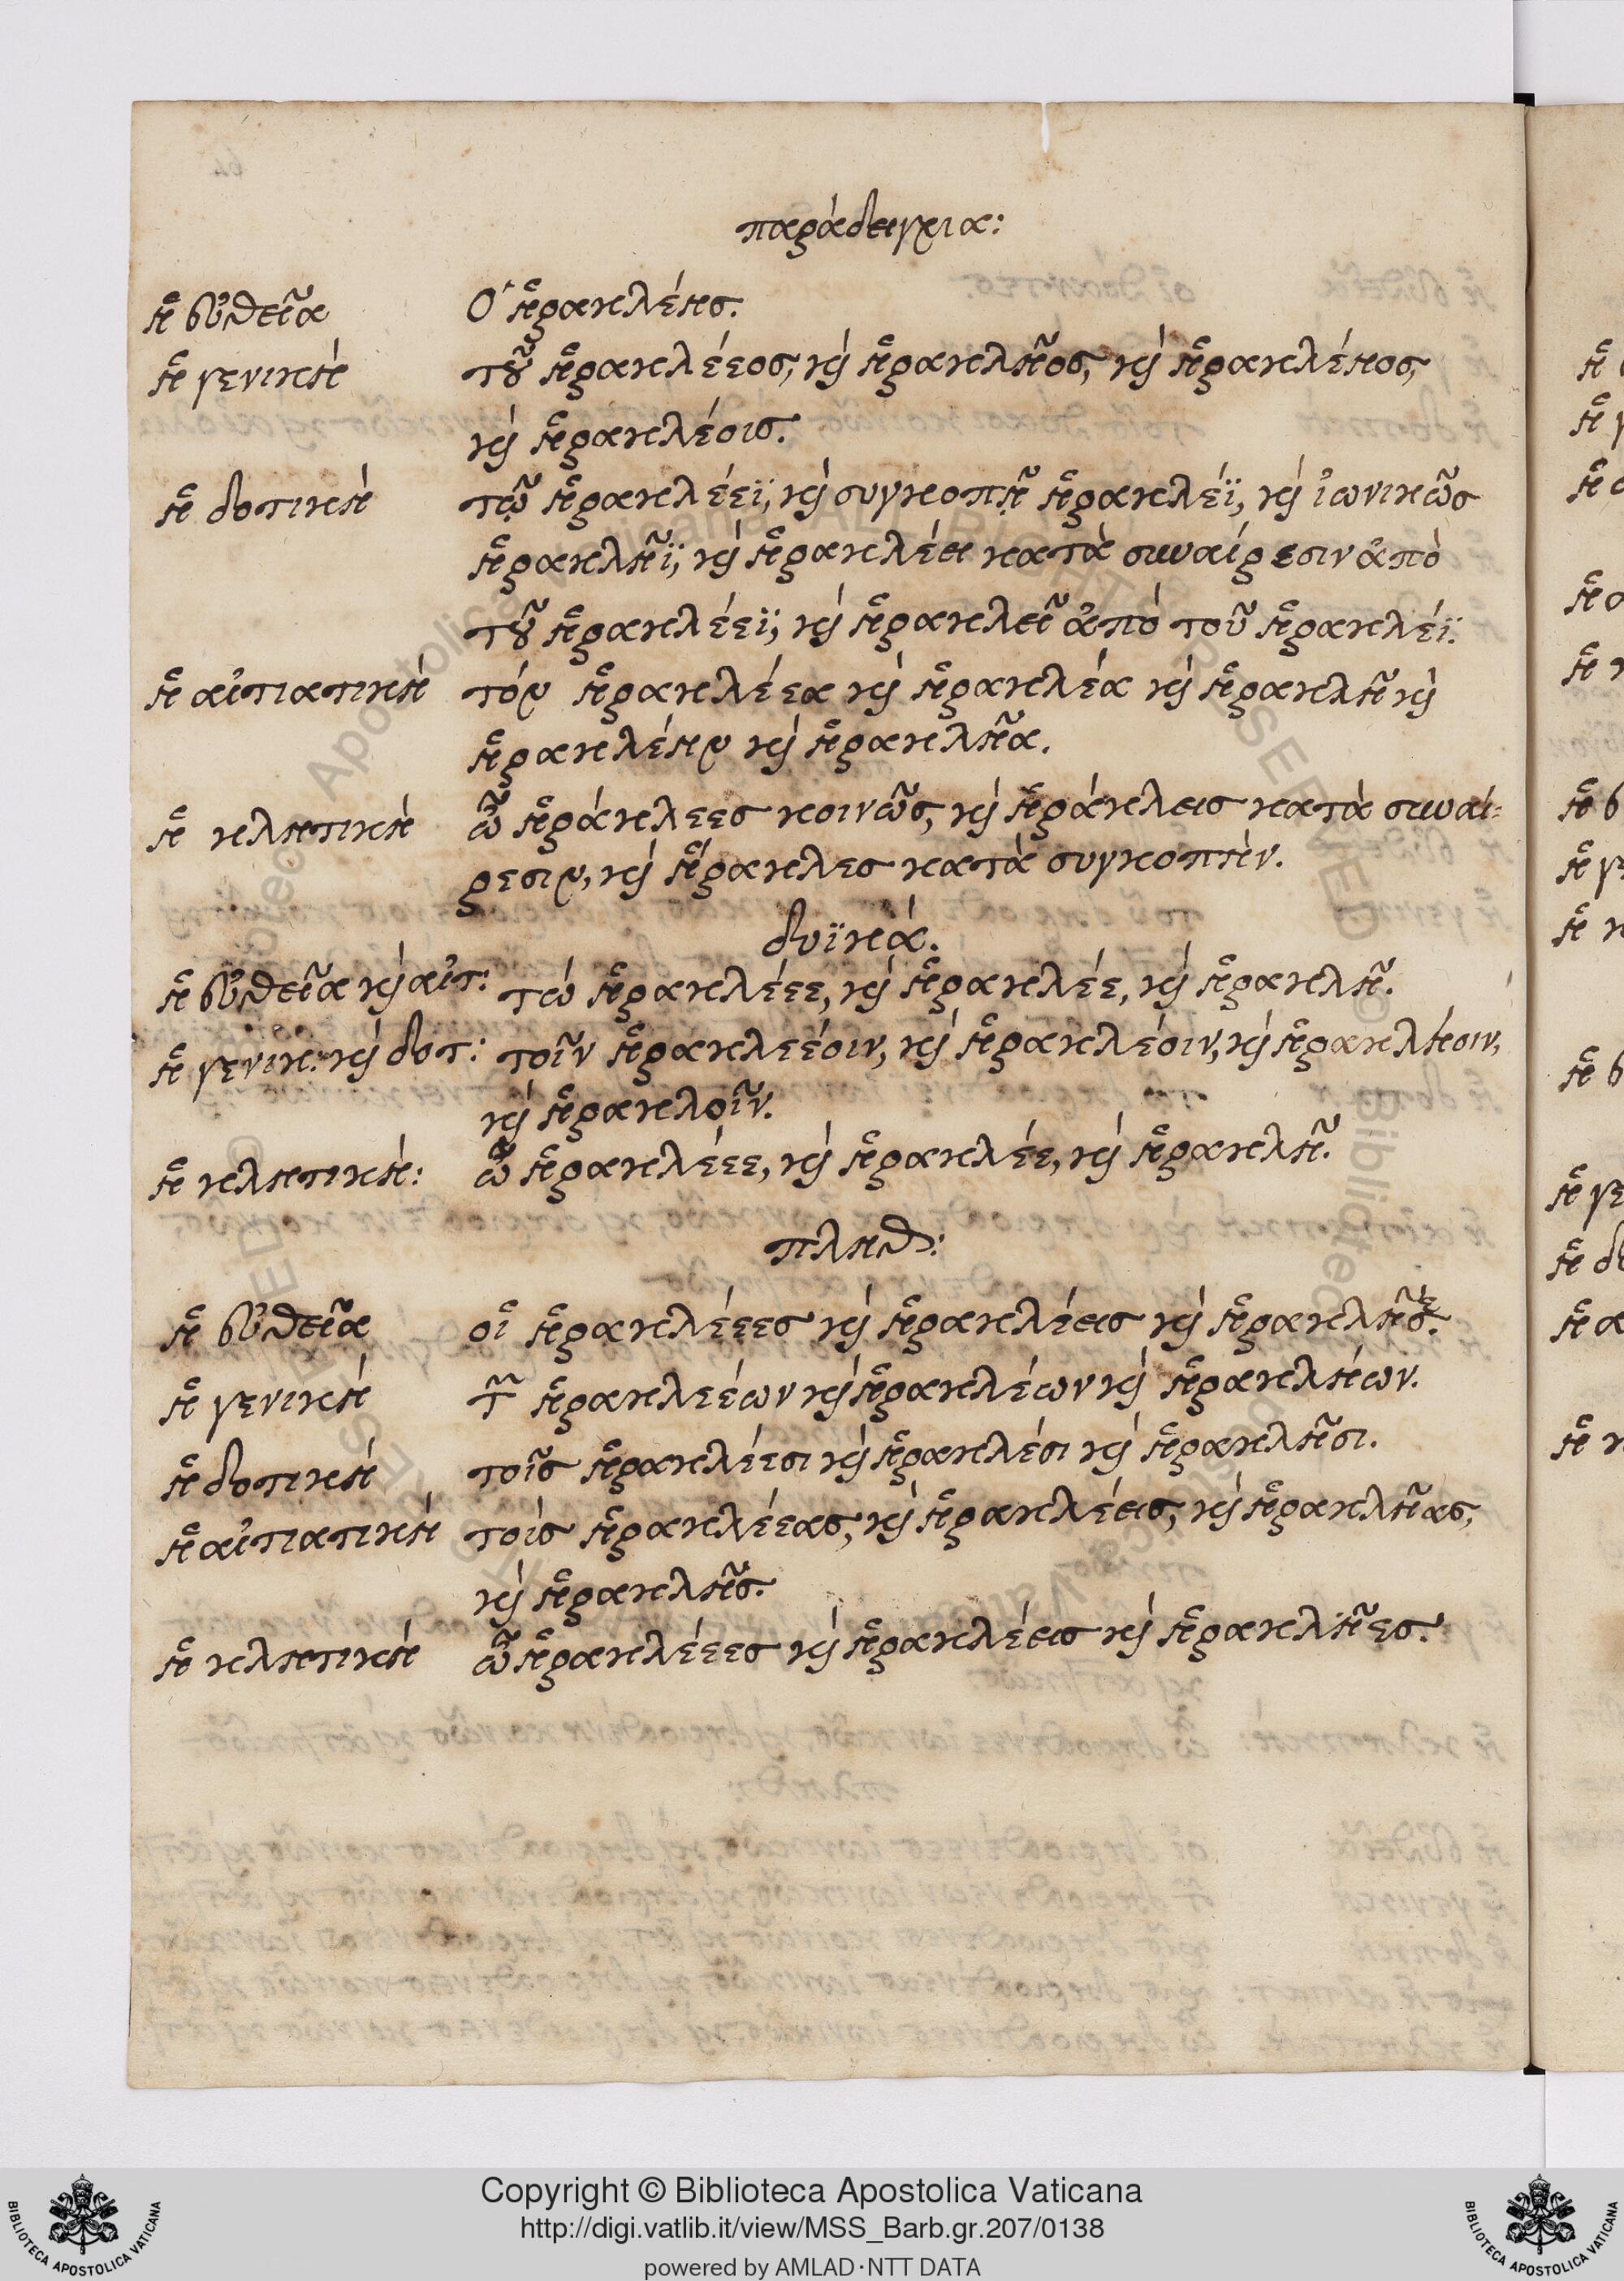 παράδειγμα:
ἡ εὐθεῖα Ὁ ἡρακλέης.
ἡ γενικὴ τοῦ ἡρακλέεος, καὶ ἡρακλῆος, καὶ ἡρακλέηος,
καὶ ἡρακλέοις.
ἡ δοτικὴ τῷ ἡρακλέεϊ, καὶ συγκοπῇ ἡρακλέϊ, καὶ ἰωνικῶς
ἡρακλῆϊ, καὶ ἡρακλέει κατὰ συναίρεσιν ἀπὸ
τοῦ ἡρακλέεϊ, καὶ ἡρακλεῖ ἀπὸ τοῦ ἡρακλέϊ.
ἡ αἰτιατικὴ τὸν ἡρακλέεα καὶ ἡρακλέα καὶ ἡρακλῆ καὶ
ἡρακλέην καὶ ἡρακλῆα.
ἡ κλητικὴ ὦ ἡράκλεες κοινῶς, καὶ ἡράκλεις κατὰ συναί-
ρεσιν, καὶ ἥρακλες κατὰ συγκοπὴν.
δυϊκά.
ἡ εὐθεῖα καὶ αἰτ: τὼ ἡρακλέεε, καὶ ἡρακλέε, καὶ ἡρακλῆ.
ἡ γενικ: καὶ δοτ: τοῖν ἡρακλεέοιν, καὶ ἡρακλέοιν, καὶ ἡρακλήοιν,
καὶ ἡρακλοῖν.
ἡ κλητικὴ: ὦ ἡρακλέεε, καὶ ἡρακλέε, καὶ ἡρακλῆ.
πληθ:
ἡ εὐθεῖα οἱ ἡρακλέεες καὶ ἡρακλέεις καὶ ἡρακλῆες.
ἡ γενικὴ τῶν ἡρακλεέων καὶ ἡρακλέων καὶ ἡρακλήων.
ἡ δοτικὴ τοῖς ἡρακλέεσι καὶ ἡρακλέσι καὶ ἡρακλῆσι.
ἡ αἰτιατικὴ τοὶς ἡρακλέεας, καὶ ἡρακλέεις, καὶ ἡρακλῆας,
καὶ ἡρακλῆς.
ἡ κλητικὴ ὦ ἡρακλέεες καὶ ἡρακλέεις καὶ ἡρακλῆες.
Copyright © Biblioteca Apostolica Vaticana
http://digi.vatlib.it/view/MSS_Barb.gr.207/0138
powered by AMLAD·NTT DATA
BIBLIOTECA APOSTOLICA VATICANA
BIBLIOTECA APOSTOLICA VATICANA